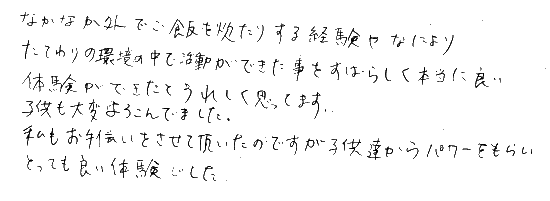 なかなか外でご飯を炊たりする経験やなにより
たてわりの環境の中で活動ができた事をすばらしく本当に良い
体験ができたとうれしく思ってます。
子供も大変よろこんでました。
私もお手伝いをさせて頂いたのですが子供達からパワーをもらい
とっても良い体験でした。